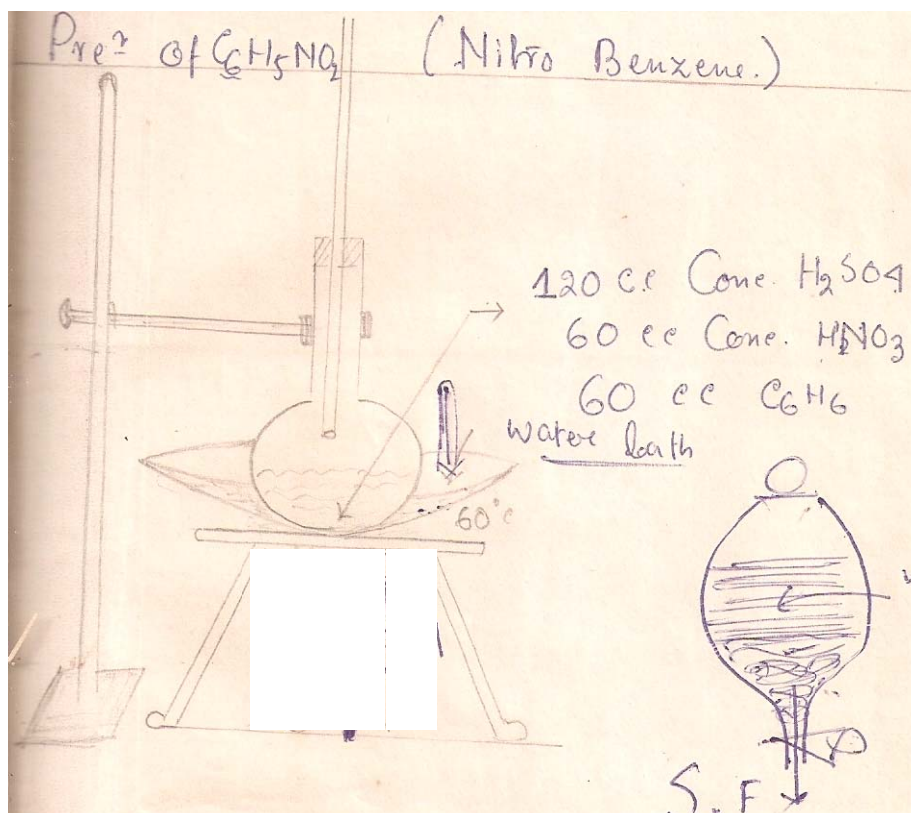 Pre^n of C6H5NO2 (Nitro Benzene.)
120 c.c Conc. H2SO4
60 cc Conc. HNO3
60 cc C6H6
water bath
60°c
S.F